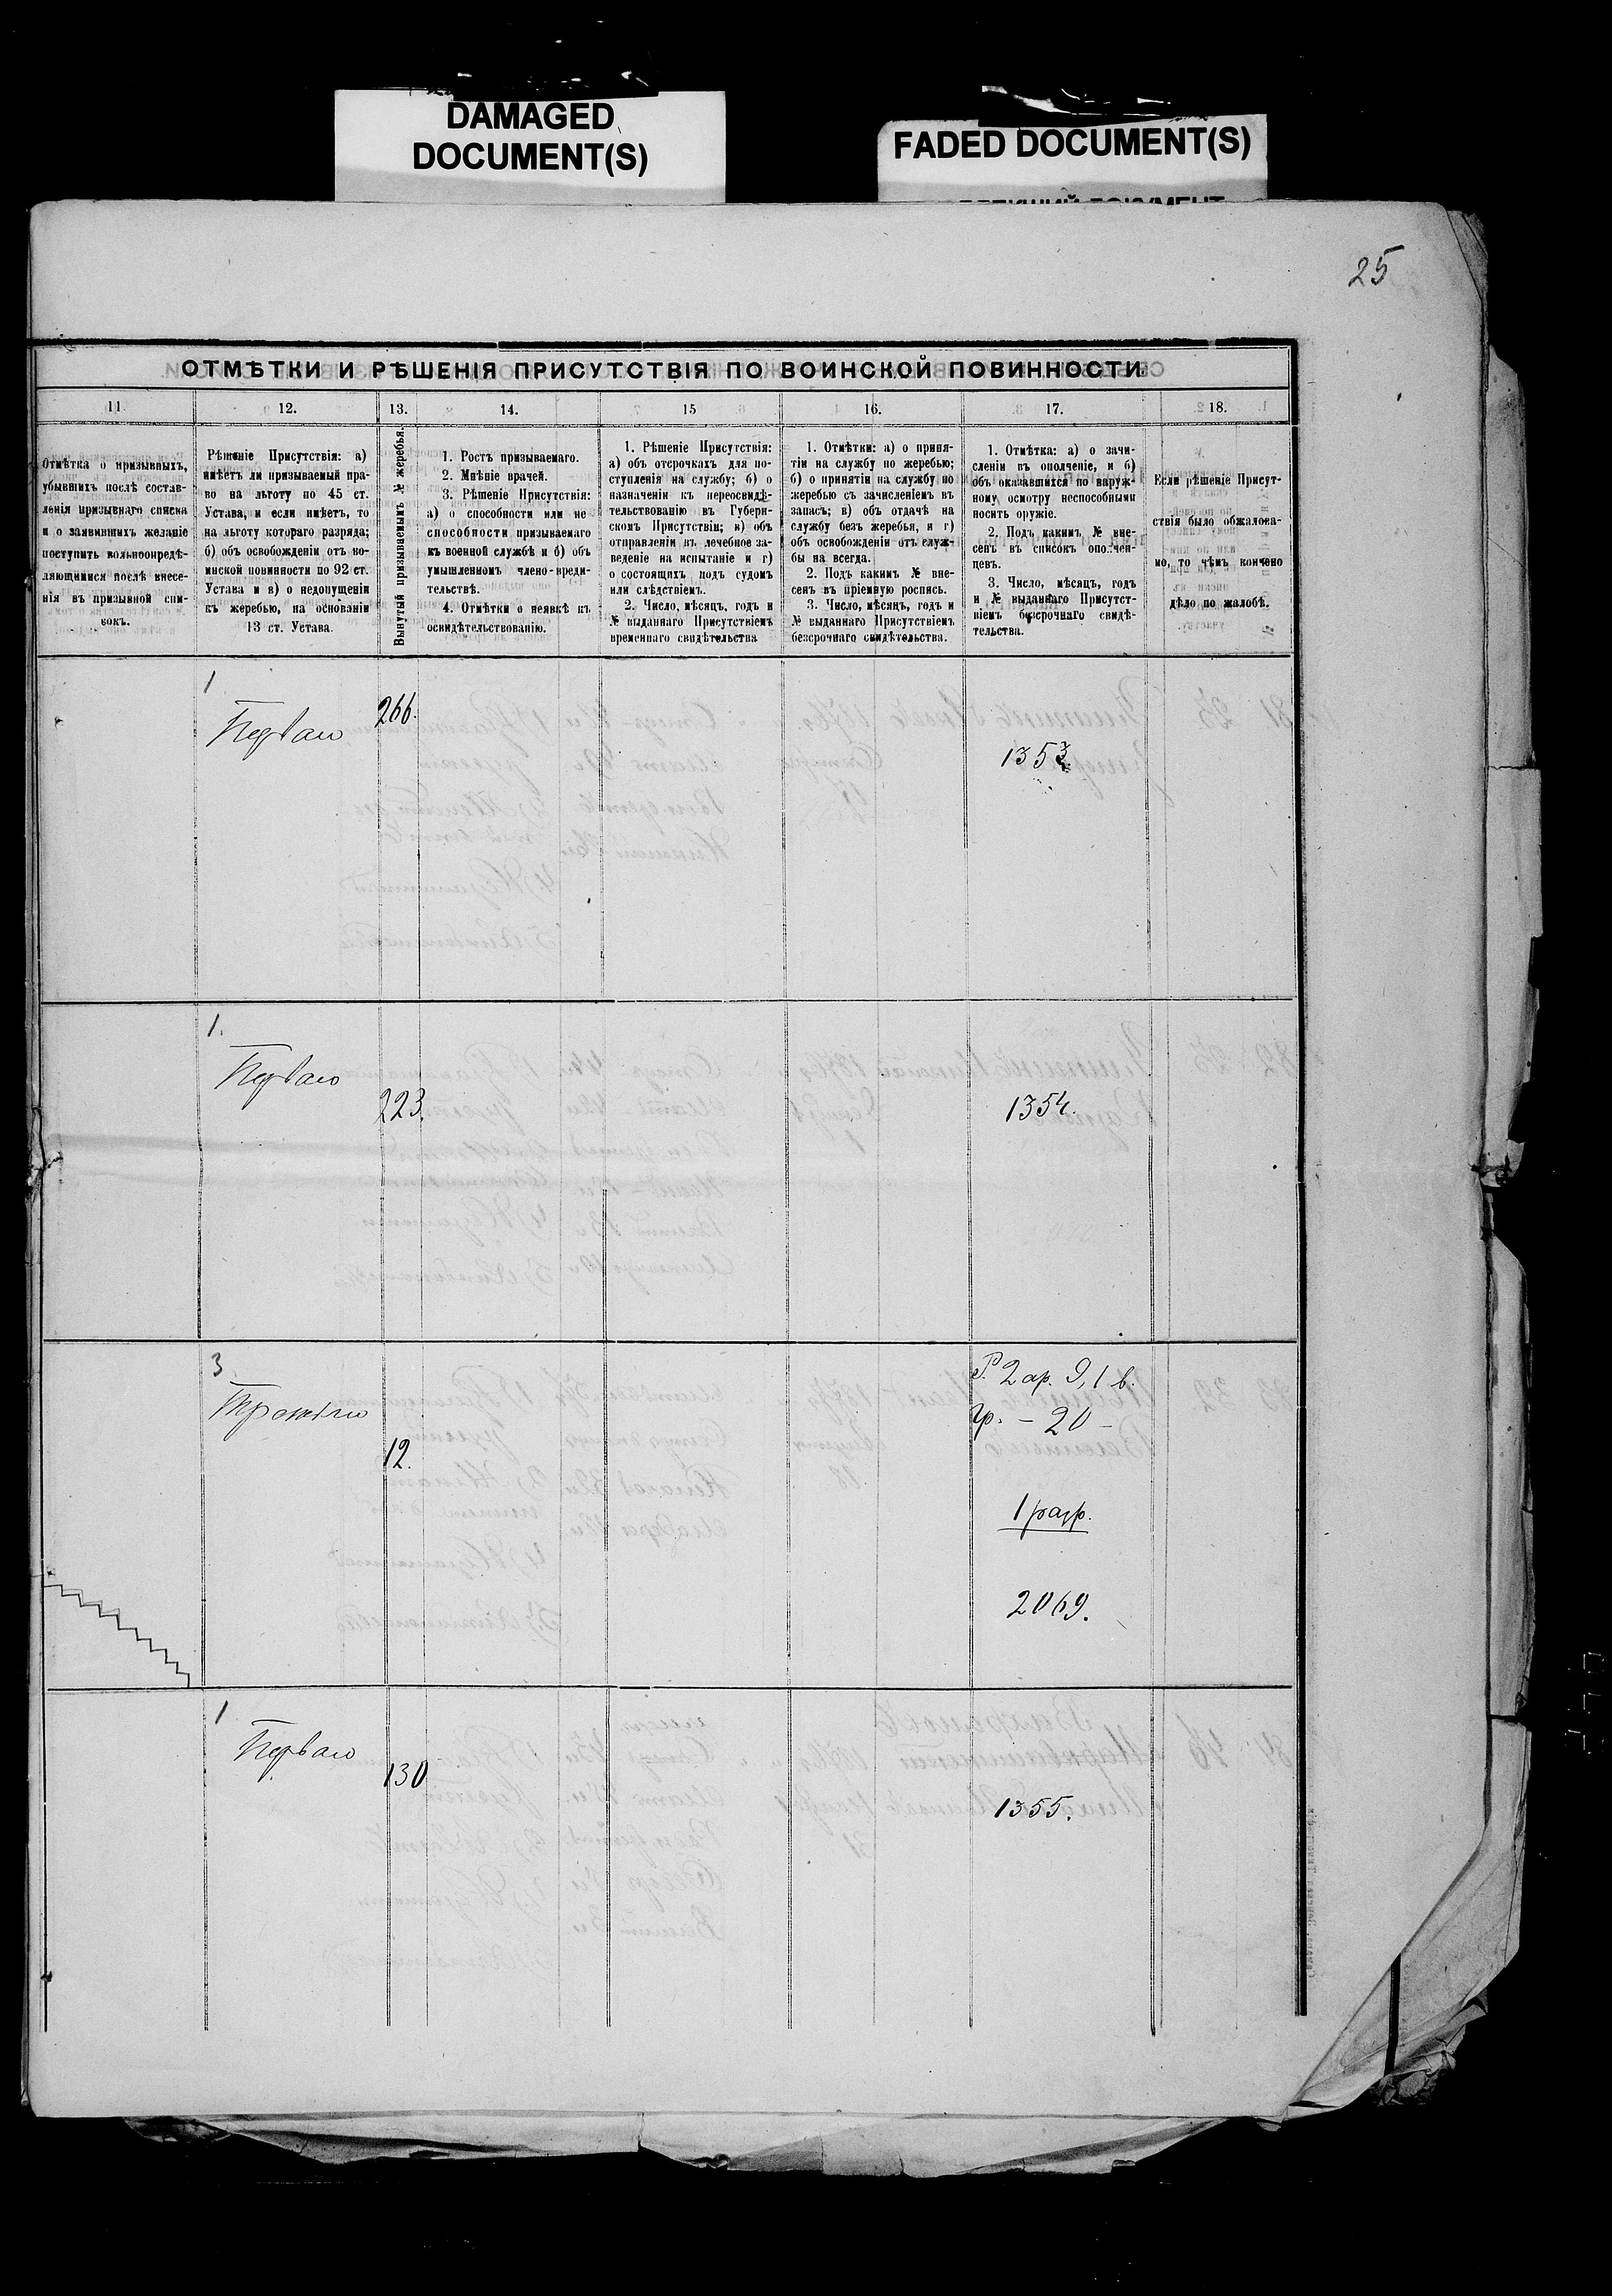 DAMAGED
DOCUMENT(S)
FADED DOCUMENT(S)
25
ОТМѢТКИ И РѢШЕНІЯ ПРИСУТСТВІЯ ПО ВОИНСКОЙ ПОВИННОСТИ
11
12.
13.
14.
15
16.
17.
18.
Отмѣтка о призывныхъ,
убывшихъ послѣ состав-
ленія призывнаго списка
и о заявившихъ желаніе
поступить вольноопредѣ-
ляющимися послѣ внесе-
нія въ призывной спи-
сокъ.
Рѣшеніе Присутствія: а)
имѣетъ ли призываемый пра-
во на льготу по 45 ст.
Устава, и если имѣетъ, то
на льготу котораго разряда;
б) объ освобожденіи отъ во-
инской повинности по 92 ст.
Устава и в) о недопущеніи
къ жеребью, на основаніи
13 ст. Устава.
Вынутый призываемымъ № жеребья.
1. Ростъ призываемаго.
2. Мнѣніе врачей.
3. Рѣшеніе Присутствія:
а) о способности или не
способности призываемаго
къ военной службѣ и б) объ
умышленномъ члено-вреди-
тельствѣ.
4. Отмѣтки о неявкѣ къ
освидѣтельствованію.
1. Рѣшеніе Присутствія:
а) объ отсрочкахъ для по-
ступленія на службу; б) о
назначеніи къ переосвидѣ-
тельствованію въ Губерн-
скомъ Присутствіи; в) объ
отправленіи въ лечебное за-
веденіе на испытаніе и г)
о состоящихъ подъ судомъ
или слѣдствіемъ.
2. Число, мѣсяцъ, годъ и
№ выданнаго Присутствіемъ
временнаго свидѣтельства
1. Отмѣтки: а) о приня-
тіи на службу по жеребью;
б) о принятіи на службу по
жеребью съ зачисленіемъ въ
запасъ; в) объ отдачѣ на
службу безъ жеребья, и г)
объ освобожденіи отъ служ-
бы на всегда.
2. Подъ какимъ № вне-
сенъ въ пріемную роспись.
3. Число, мѣсяцъ, годъ и
№ выданнаго Присутствіемъ
безсрочнаго свидѣтельства.
1. Отмѣтка: а) о зачи-
сленіи въ ополченіе, и б)
объ оказавшихся по наруж-
ному осмотру неспособными
носить оружіе.
2. Подъ какимъ № вне-
сенъ въ списокъ ополчен-
цевъ.
3. Число, мѣсяцъ, годъ
и № выданнаго Присутст-
віемъ безсрочнаго свидѣ-
тельства.
Если рѣшеніе Присут-
ствія было обжалова-
но, то чѣмъ кончено
дѣло по жалобѣ.
1
Перваго
266.
1353.
1.
Перваго
223.
1354.
3
Третьяго
12.
Р. 2 ар. 9, 1 в.
гр. - 20 -
1 разр.
2069.
1
Перваго
130
1355.